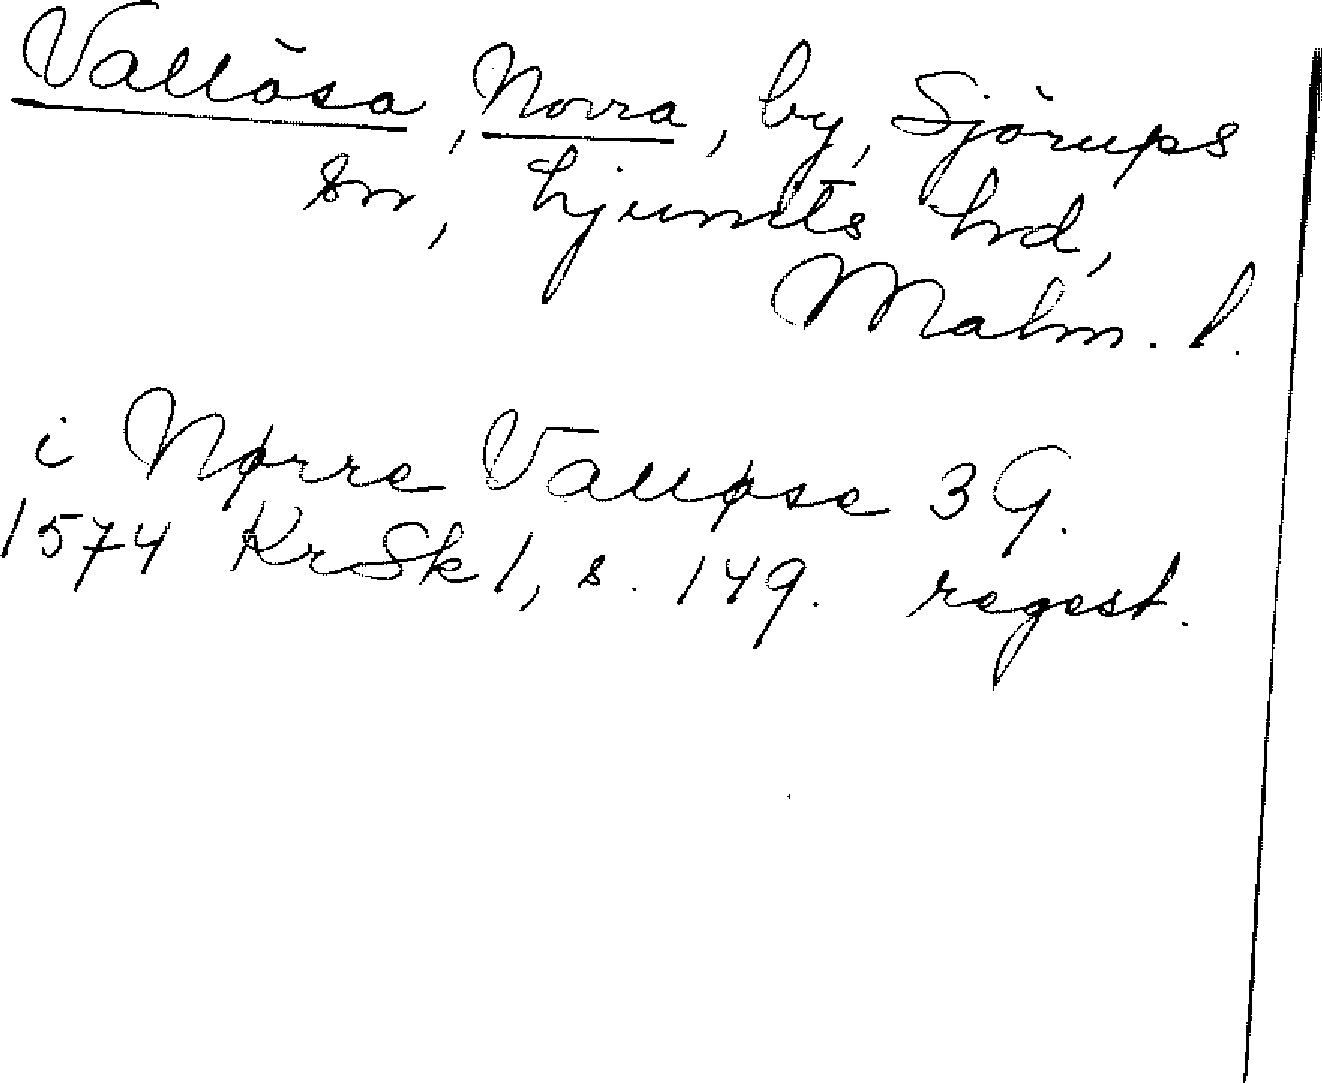 Vallösa, Norra, by, Sjörups
sn, Ljunits hrd,
Malm. l.
i Nørre Valløse 3 G.
1574 KrSk 1, s. 149. regest.